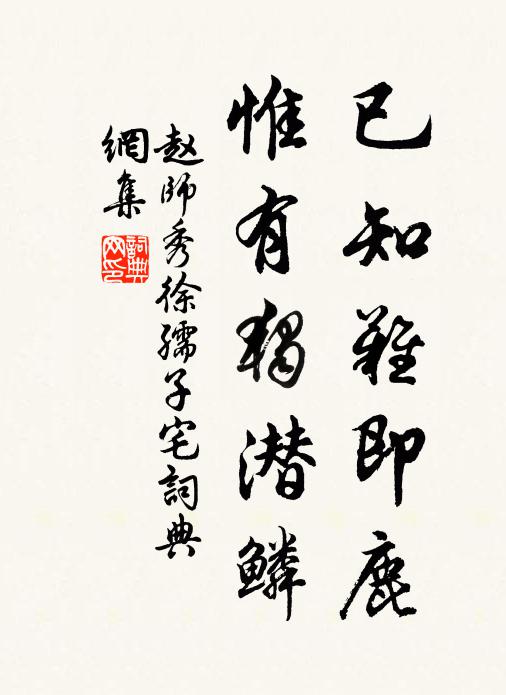 已知難即鹿
惟有獨潜鱗
赵師秀徐孺子宅詞典
網集
詞典网印